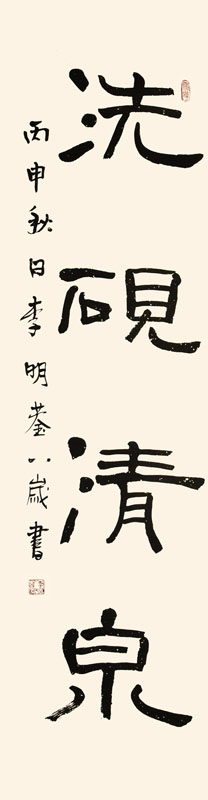 洗硯清泉
丙申秋日李明荃八歲書